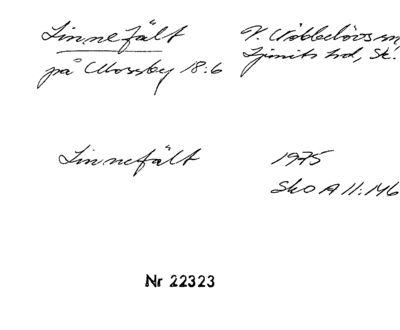 Linnefält
på Mossby 18:6
V. Nöbbelövs sn,
Ljunits hd, Sk.
Linnefält
1975
Sko A II:146
Nr 22323